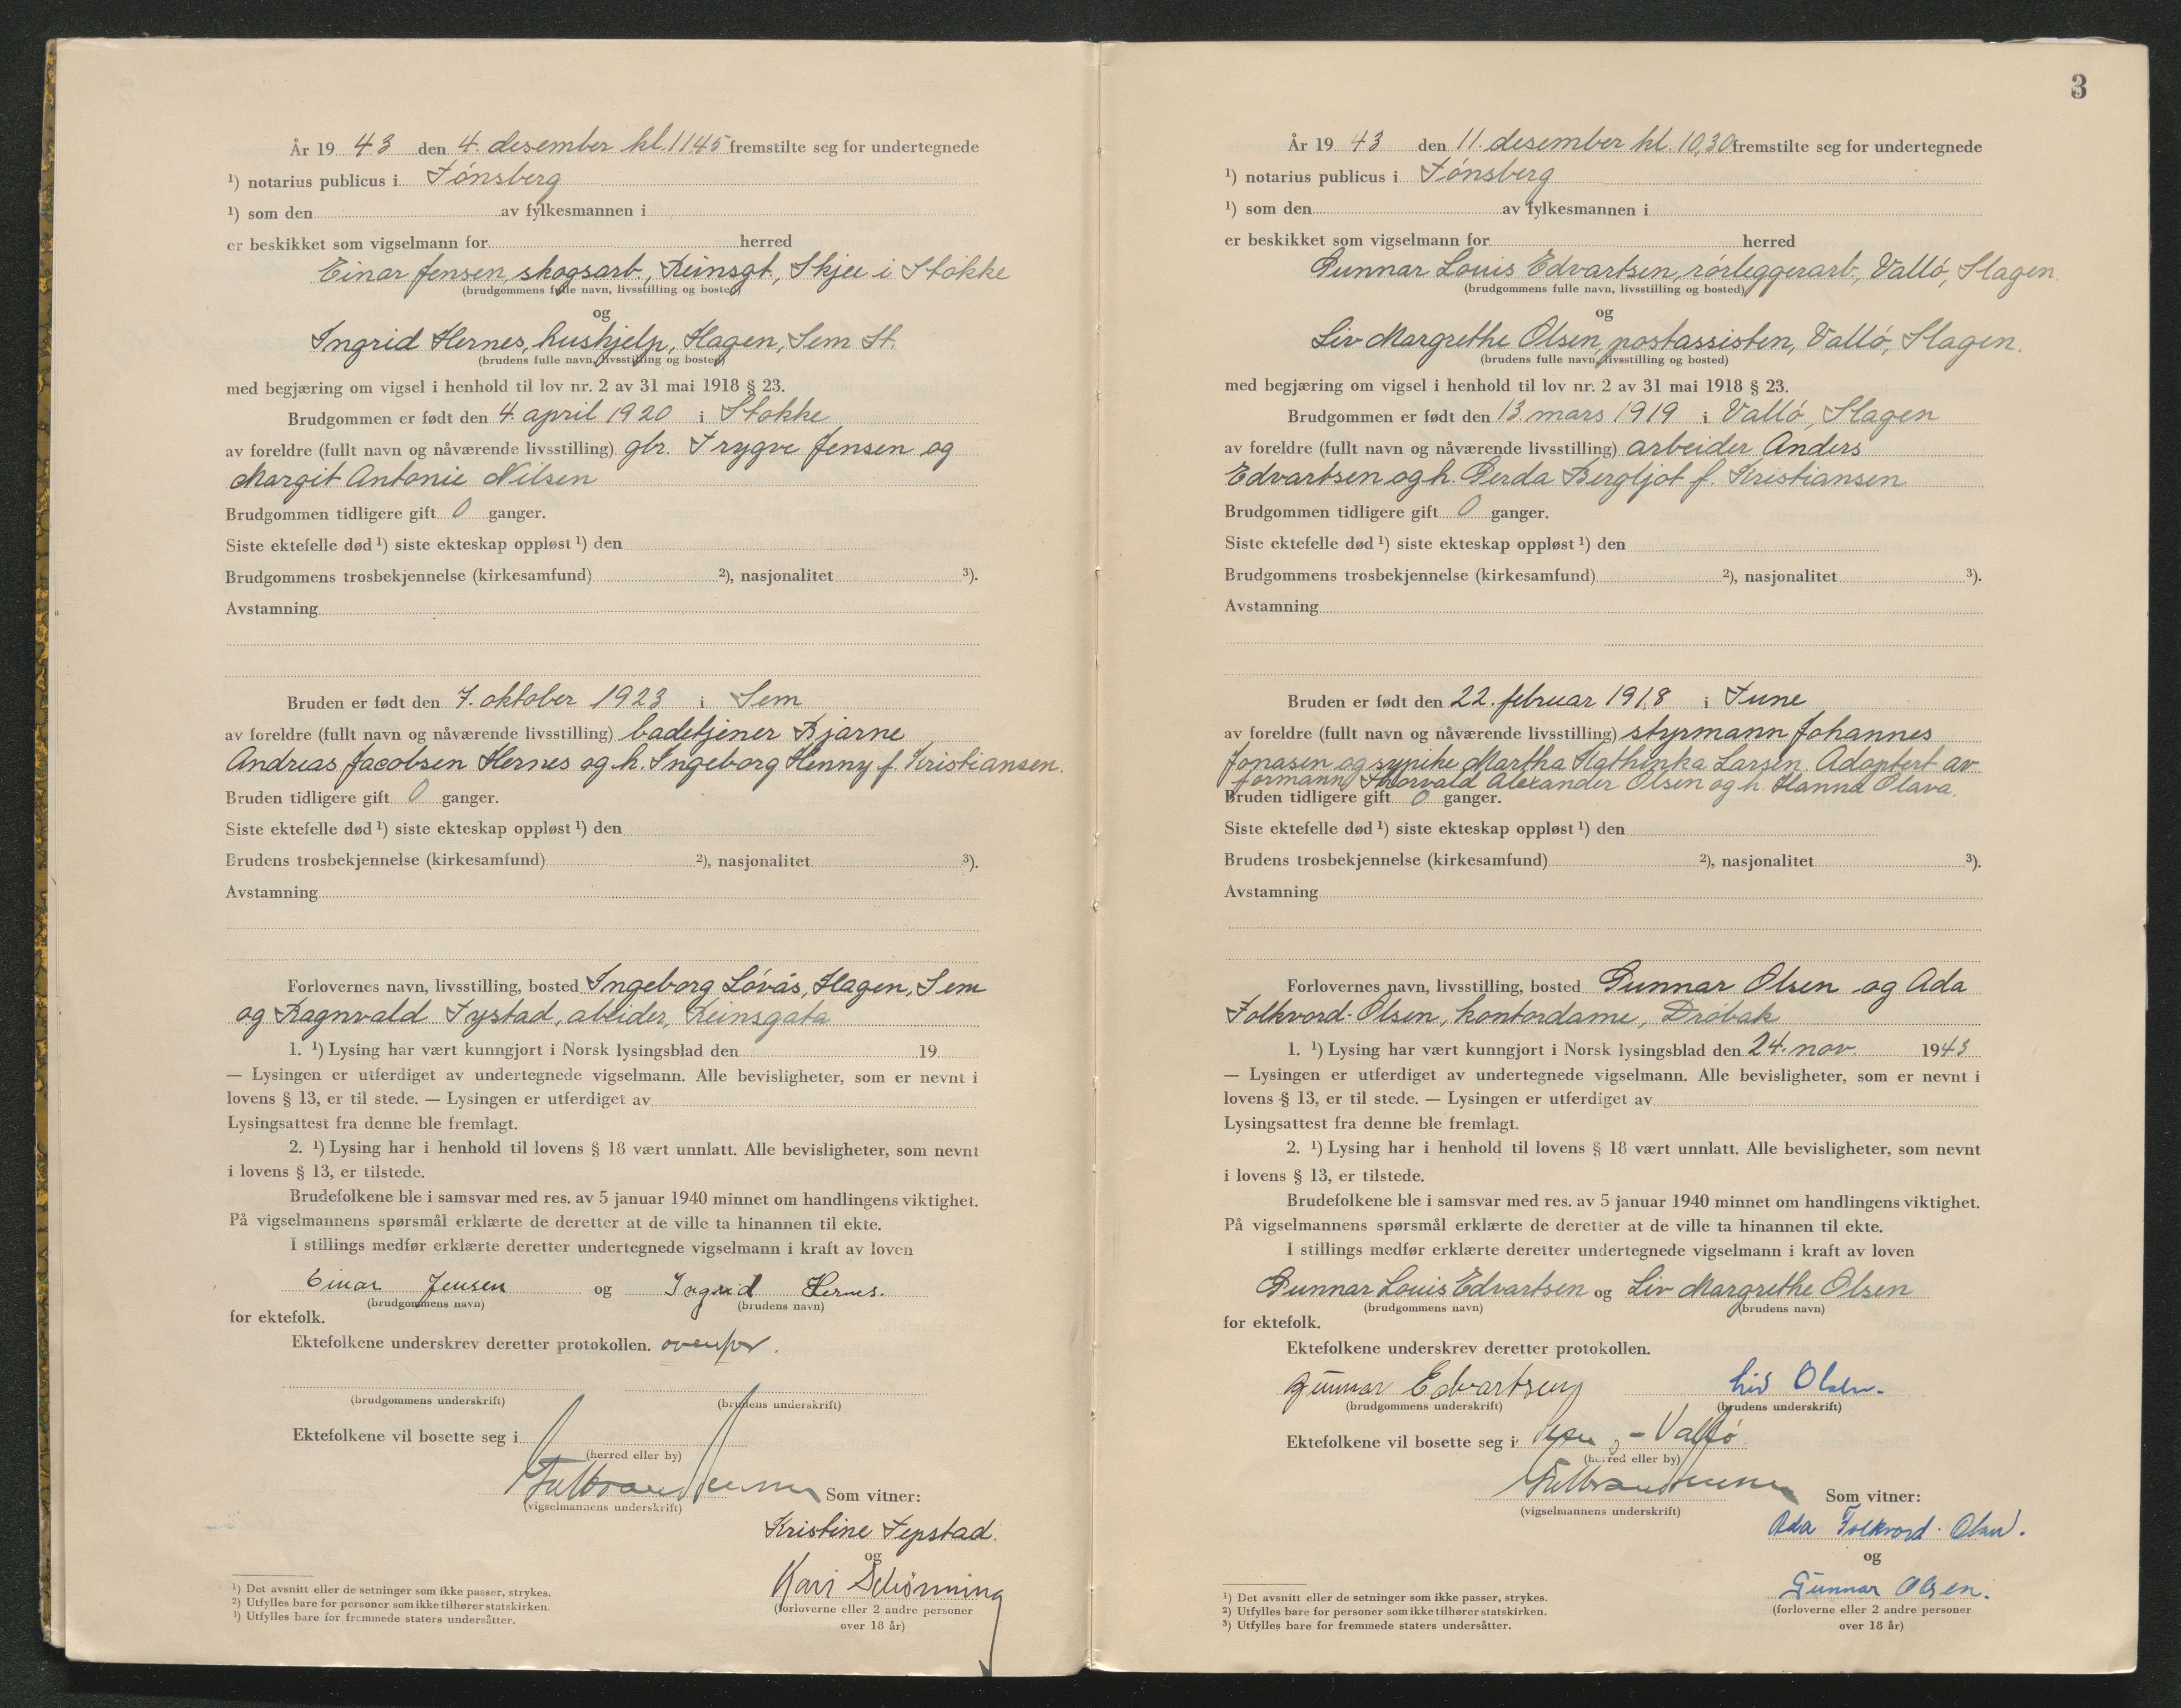 År 19 43 den 4. desember kl. 1145 fremstilte seg for undertegnede
¹) notarius publicus i Tønsberg
¹) som den av fylkesmannen i
er beskikket som vigselmann for herred
Einar Jensen, skogsarb., Reinsgt., Skjee i Stokke
(brudgommens fulle navn, livsstilling og bosted)
og
Ingrid Hernes, hushjelp, Hagen, Sem St.
(brudens fulle navn, livsstilling og bosted)
med begjæring om vigsel i henhold til lov nr. 2 av 31 mai 1918 § 23.
Brudgommen er født den 4. april 1920 i Stokke
av foreldre (fullt navn og nåværende livsstilling) gbr. Trygve Jensen og
Margit Antonie Nilsen
Brudgommen tidligere gift 0 ganger.
Siste ektefelle død ¹) siste ekteskap oppløst ¹) den
Brudgommens trosbekjennelse (kirkesamfund) ²), nasjonalitet ³).
Avstamning
Bruden er født den 7. oktober 1923 i Sem
av foreldre (fullt navn og nåværende livsstilling) badetjener Bjarne
Andreas Jacobsen Hernes og h. Ingeborg Henny f. Kristiansen.
Bruden tidligere gift 0 ganger.
Siste ektefelle død ¹) siste ekteskap oppløst ¹) den
Brudens trosbekjennelse (kirkesamfund) ²), nasjonalitet ³).
Avstamning
Forlovernes navn, livsstilling, bosted Ingeborg Løvås, Hagen, Sem
og Ragnvald Tystad, abeider, Reinsgata
1. ¹) Lysing har vært kunngjort i Norsk lysingsblad den 19
— Lysingen er utferdiget av undertegnede vigselmann. Alle bevisligheter, som er nevnt i
lovens § 13, er til stede. — Lysingen er utferdiget av
Lysingsattest fra denne ble fremlagt.
2. ¹) Lysing har i henhold til lovens § 18 vært unnlatt. Alle bevisligheter, som nevnt
i lovens § 13, er tilstede.
Brudefolkene ble i samsvar med res. av 5 januar 1940 minnet om handlingens viktighet.
På vigselmannens spørsmål erklærte de deretter at de ville ta hinannen til ekte.
I stillings medfør erklærte deretter undertegnede vigselmann i kraft av loven
Einar Jensen og Ingrid Hernes.
(brudgommens navn) (brudens navn)
for ektefolk.
Ektefolkene underskrev deretter protokollen. ovenfor.
(brudgommens underskrift) (brudens underskrift)
Ektefolkene vil bosette seg i
(herred eller by)
Som vitner:
(vigselmannens underskrift)
Kristine Tepstad.
og
Kari Schönning
(forloverne eller 2 andre personer
over 18 år)
¹) Det avsnitt eller de setninger som ikke passer, strykes.
²) Utfylles bare for personer som ikke tilhører statskirken.
³) Utfylles bare for fremmede staters undersåtter.
3
År 19 43 den 11. desember kl. 10,30 fremstilte seg for undertegnede
¹) notarius publicus i Tønsberg
¹) som den av fylkesmannen i
er beskikket som vigselmann for herred
Gunnar Louis Edvartsen, rørleggerarb., Vallø, Slagen.
(brudgommens fulle navn, livsstilling og bosted)
og
Liv Margrethe Olsen, postassisten, Vallø, Slagen.
(brudens fulle navn, livsstilling og bosted)
med begjæring om vigsel i henhold til lov nr. 2 av 31 mai 1918 § 23.
Brudgommen er født den 13. mars 1919 i Vallø, Slagen
av foreldre (fullt navn og nåværende livsstilling) arbeider Anders
Edvartsen og h. Gerda Bergljot f. Kristiansen
Brudgommen tidligere gift 0 ganger.
Siste ektefelle død ¹) siste ekteskap oppløst ¹) den
Brudgommens trosbekjennelse (kirkesamfund) ²), nasjonalitet ³).
Avstamning
Bruden er født den 22. februar 1918 i Tune
av foreldre (fullt navn og nåværende livsstilling) styrmann Johannes
Jonasen og sypike Martha Kathinka Larsen. Adoptert av
formann Thorvald Alexander Olsen og h. Hanna Olava.
Bruden tidligere gift 0 ganger.
Siste ektefelle død ¹) siste ekteskap oppløst ¹) den
Brudens trosbekjennelse (kirkesamfund) ²), nasjonalitet ³).
Avstamning
Forlovernes navn, livsstilling, bosted Gunnar Olsen og Ada
Folkvord-Olsen, kontordame, Drøbak
1. ¹) Lysing har vært kunngjort i Norsk lysingsblad den 24. nov. 1943
— Lysingen er utferdiget av undertegnede vigselmann. Alle bevisligheter, som er nevnt i
lovens § 13, er til stede. — Lysingen er utferdiget av
Lysingsattest fra denne ble fremlagt.
2. ¹) Lysing har i henhold til lovens § 18 vært unnlatt. Alle bevisligheter, som nevnt
i lovens § 13, er tilstede.
Brudefolkene ble i samsvar med res. av 5 januar 1940 minnet om handlingens viktighet.
På vigselmannens spørsmål erklærte de deretter at de ville ta hinannen til ekte.
I stillings medfør erklærte deretter undertegnede vigselmann i kraft av loven
Gunnar Louis Edvartsen og Liv Margrethe Olsen
(brudgommens navn) (brudens navn)
for ektefolk.
Ektefolkene underskrev deretter protokollen.
Gunnar Edvartsen Liv Olsen.
(brudgommens underskrift) (brudens underskrift)
Ektefolkene vil bosette seg i - Vallø
(herred eller by)
Som vitner:
(vigselmannens underskrift)
Ada Folkvord-Olsen.
og
Gunnar Olsen.
(forloverne eller 2 andre personer
over 18 år)
¹) Det avsnitt eller de setninger som ikke passer, strykes.
²) Utfylles bare for personer som ikke tilhører statskirken.
³) Utfylles bare for fremmede staters undersåtter.